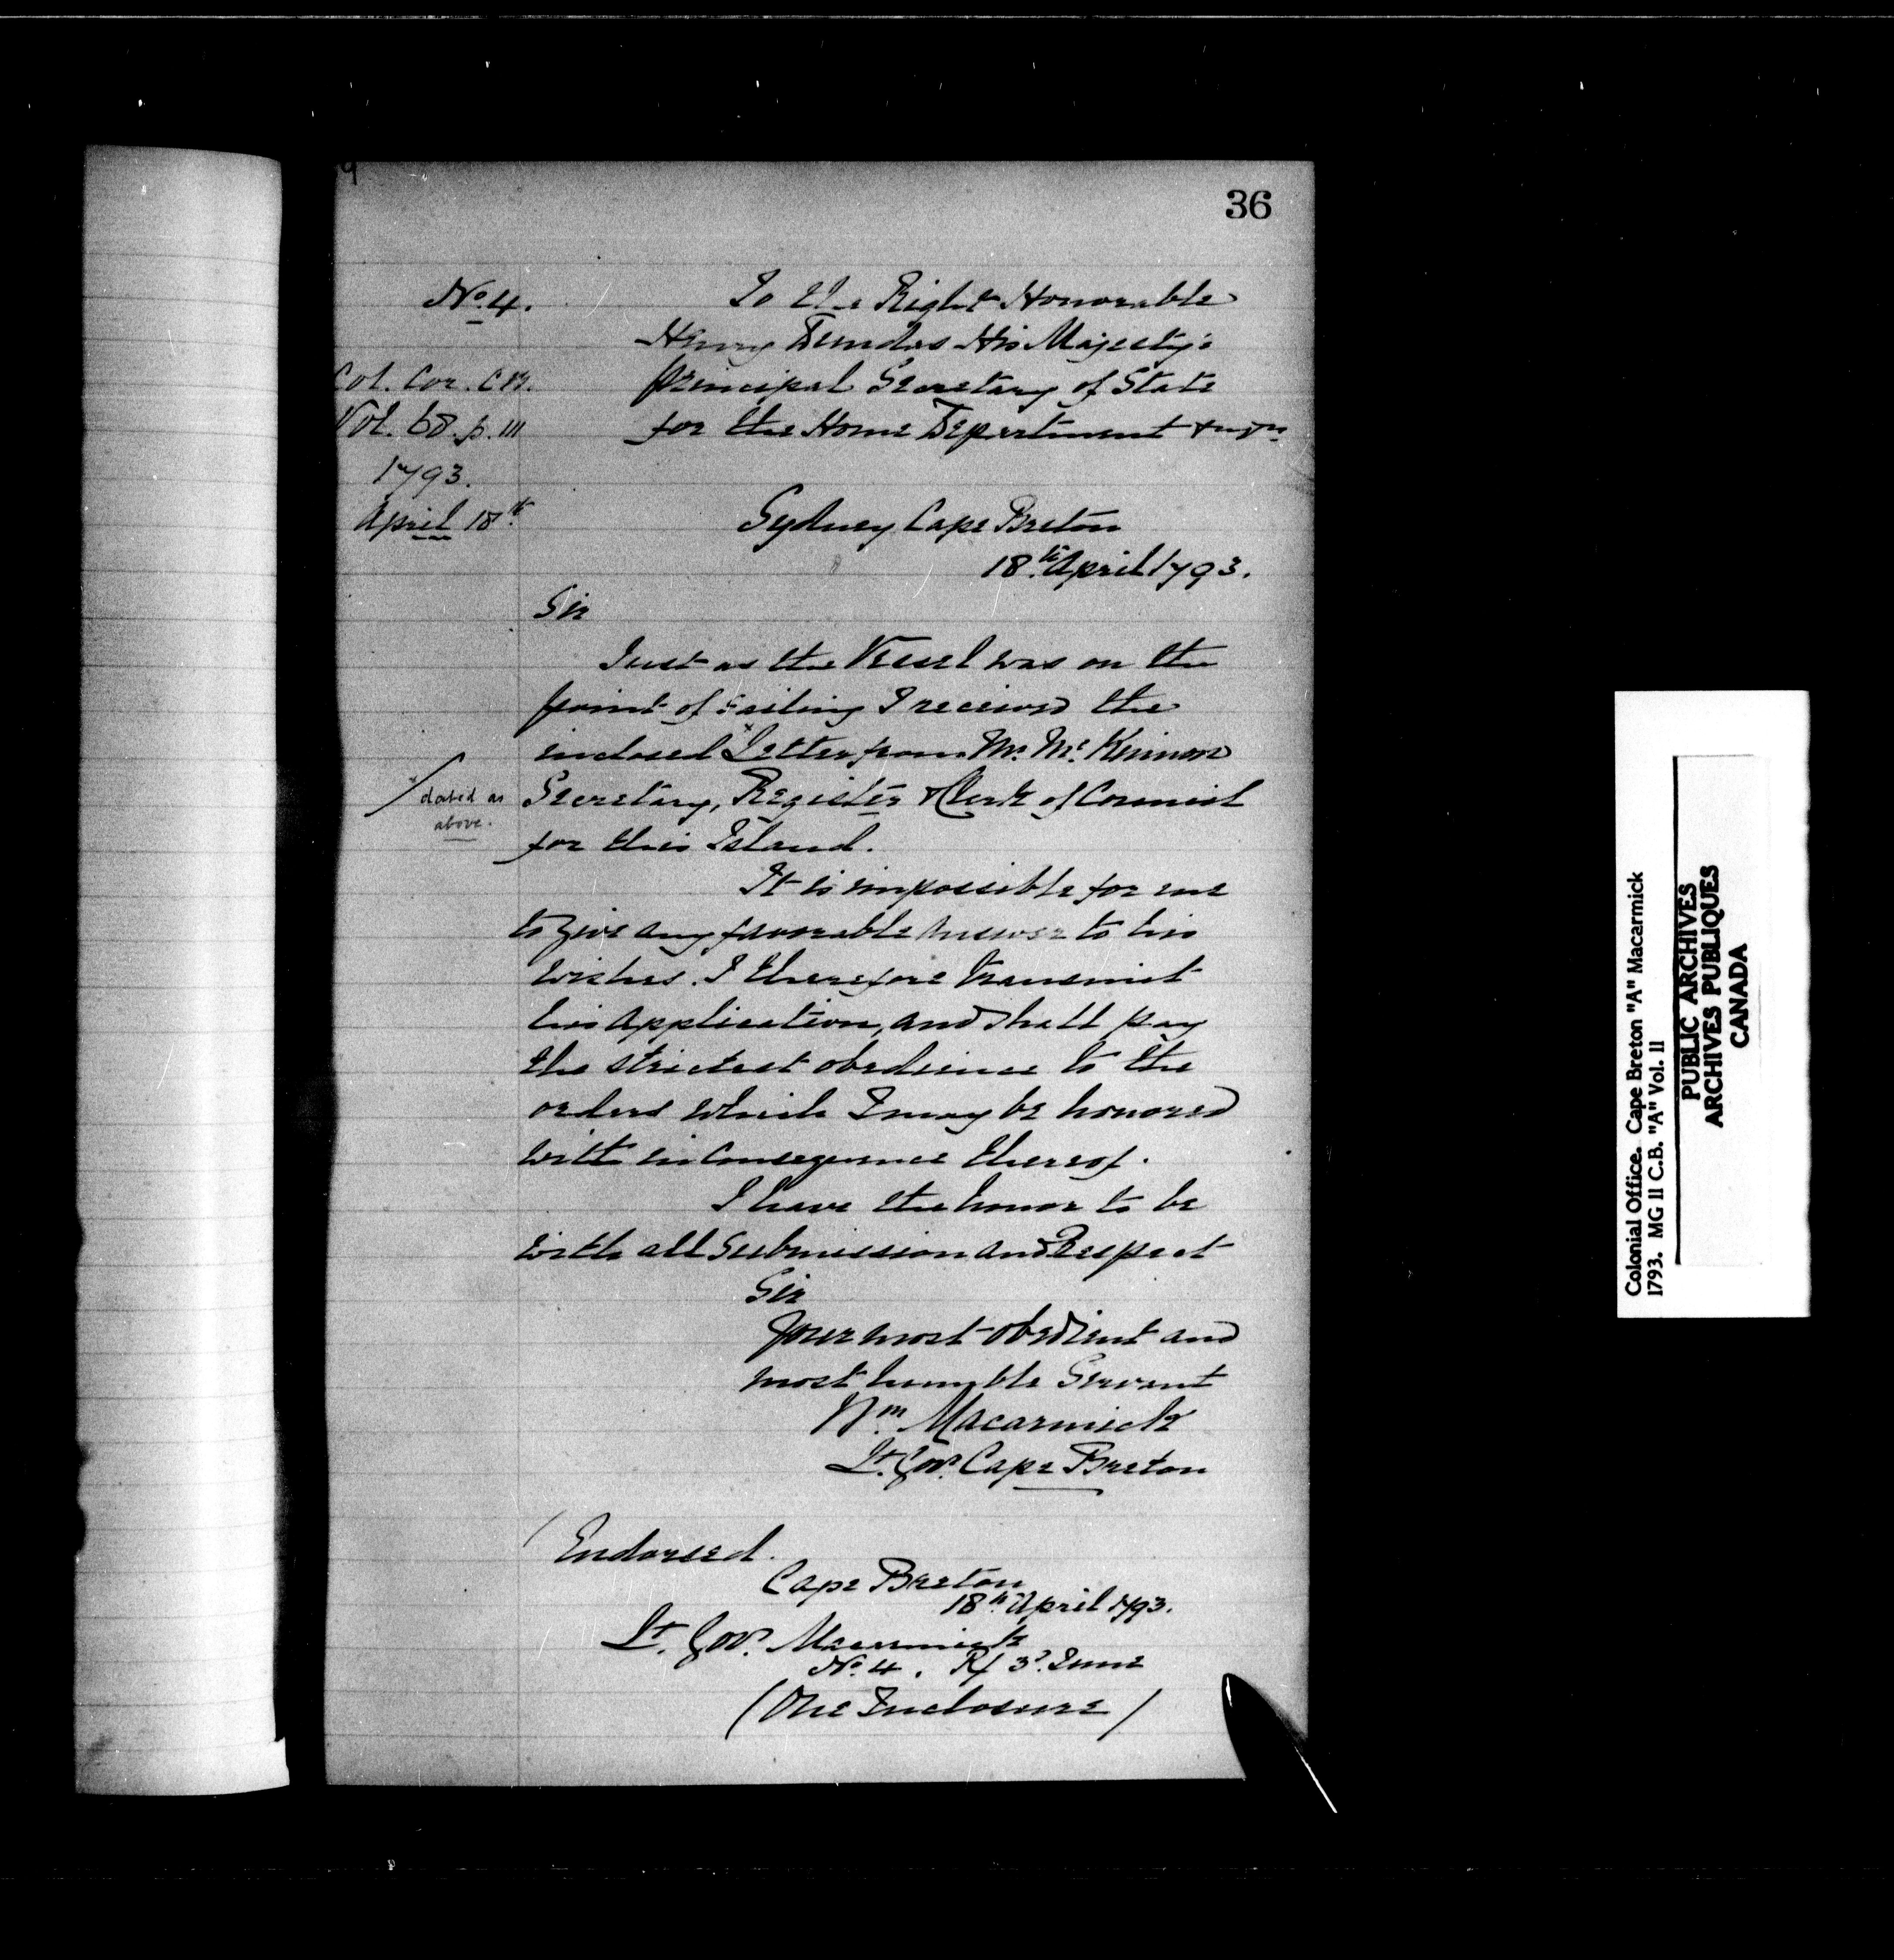 36
No. 4.
To the Right Honorable
Henry Dundas His Majesty's
Col. Cor. C.B.
principal Secretary of State
Vol. 68. p. 111
for the Home Department
1793.
April 18th.
Sydney Cape Breton
18th. April 1793.
Sir
Just as the Vessel was on the
point of sailing I received the
inclosed * Letter from Mr. Mc. Kinnon
* / dated as
above.
Secretary, Register & Clerk of Council
for this Island.
It is impossible for me
to give any favorable Answer to his
wishes. I therefore transmit
his application, and shall pay
the strictest obedience to the
orders which I may be honored
with in Consequence thereof.
I have the honor to be
with all Submission and Respect
Sir
Your most obedient and
most humble Servant
Wm. Macarmick
Lt. Gov. Cape Breton
(Endorsed.
Cape Breton
18th. April 1793.
Lt. Gov. Macarmick
No. 4. R/ 3d. June
(One Inclosure)
Colonial Office. Cape Breton "A" Macarmick
1793. MG 11 C.B. "A" Vol. 11
PUBLIC ARCHIVES
ARCHIVES PUBLIQUES
CANADA